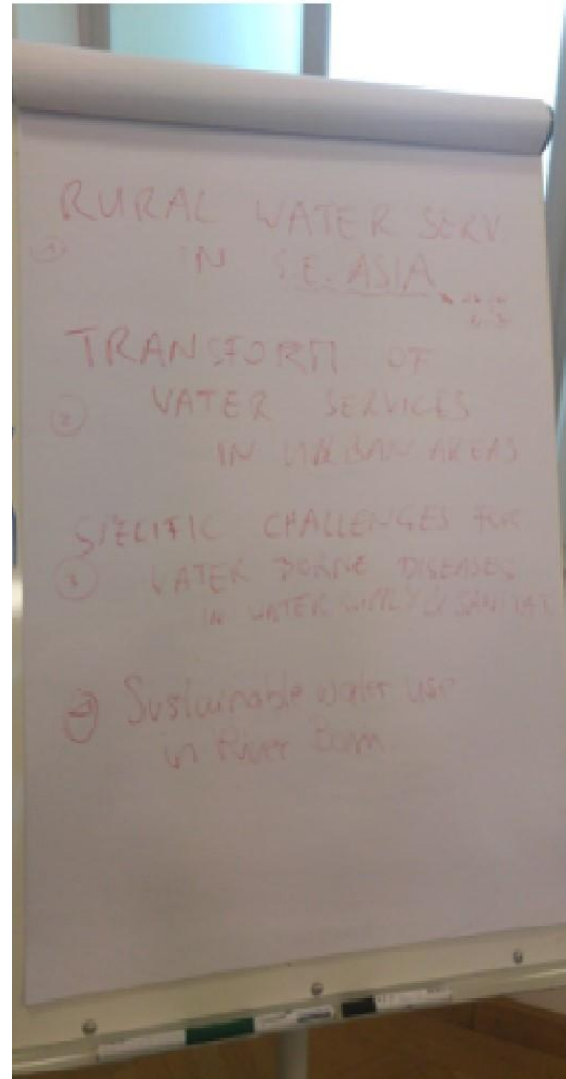 RURAL WATER SERV
① IN S.E. ASIA
TRANSFORM OF
② WATER SERVICES
IN URBAN AREAS
SPECIFIC CHALLENGES FOR
③ WATER BORNE DISEASES
IN WATER SUPPLY & SANITAT
Sustainable water use
in River Basin